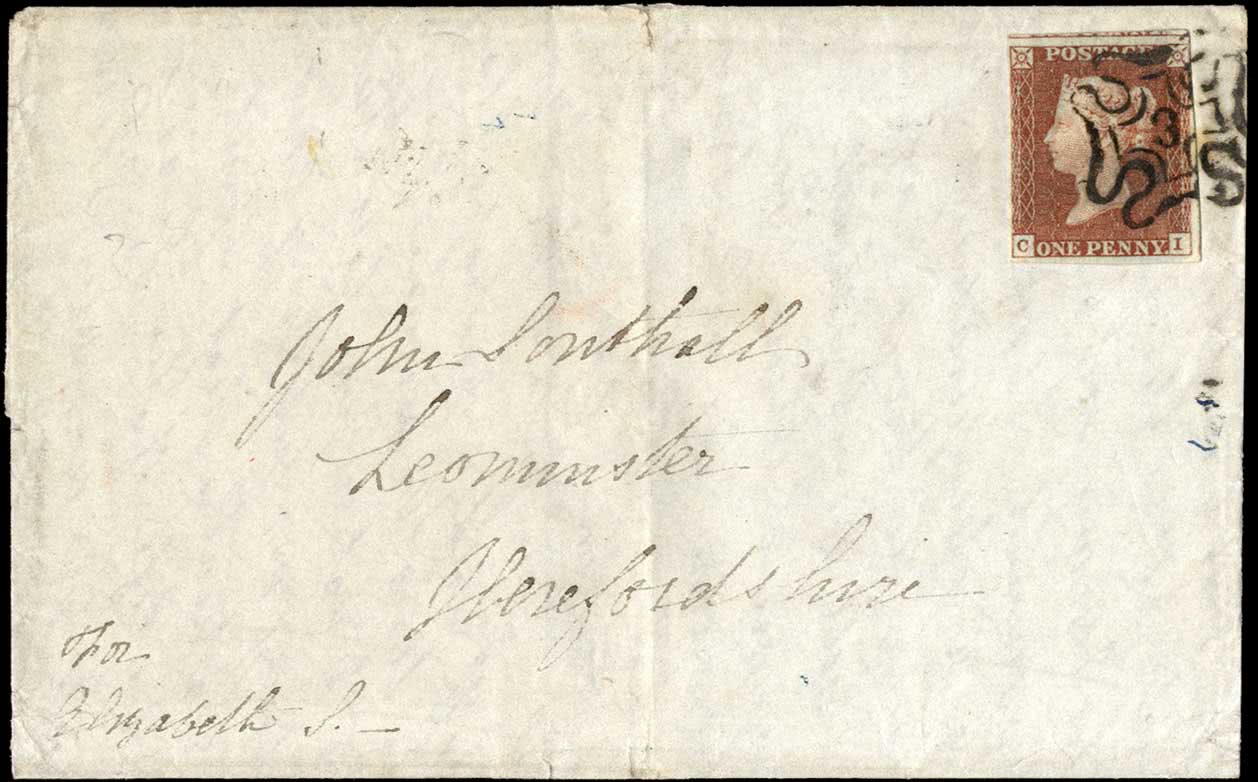 POSTAGE
3
C ONE PENNY. I
John Southall
Leominster
Herefordshire
For
Elizabeth S. —